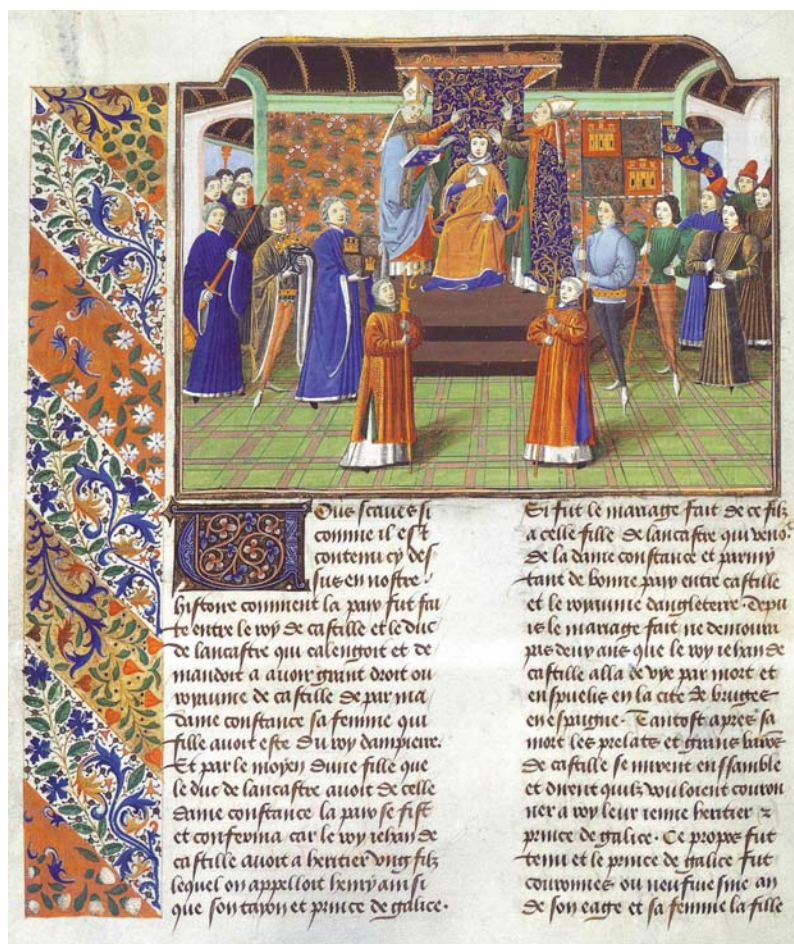 Vous scaves si
comme il est
contenu cy des
sus en nostre
histoire comment la paix fut fai
te entre le roy de castille et le duc
de lancastre qui calengoit et de
mandoit a avoir grant droit ou
royaume de castille de par ma
dame constance sa femme qui
fille avoit este du roy dampietre.
Et par le moyen dune fille que
le duc de lancastre avoit de celle
dame constance la paix se fist
et conferma car le roy iehan de
castille avoit a heritier ung filz
lequel on appelloit henry ainsi
que son tayon et prince de galice.
Si fut le mariage fait de ce filz
a celle fille de lancastre qui venoit
de la dame constance et parmy
tant de bonne paix entre castille
et le royaume dangleterre. Depu
is le mariage fait ne demoura
pas deux ans que le roy iehan de
castille alla de vye par mort et
ensepuelis en la cite de bruges
en espaigne. Tantost apres sa
mort les prelats et grans barons
de castille se mirent enssamble
et dirent quilz vouloient couron
ner a roy leur ienne heritier z
prince de galice. Ce propos fut
tenu et le prince de galice fut
couronnes ou neufiuesme an
de son eage et sa femme la fille